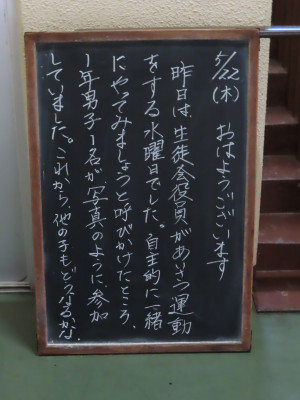 5/22(木) おはようございます
昨日は、生徒会役員があいさつ運動
をする水曜日でした。自主的に一緒
にやってみましょうと呼びかけたところ、
1年男子1名が、写真のように、参加
していました。これから、他の子もどうなるか。